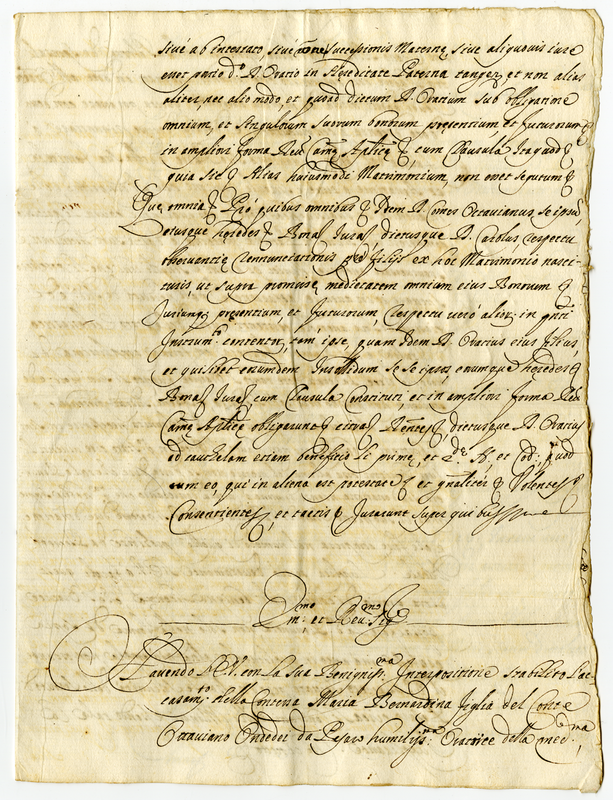 sivè ab intestato sivè successionis Maternę sive aliquovis iure
evet parto d.º D. Oratio in Hereditate Paterna tanget, et non alias
aliter nec alio modo, et quod dictum D. Oratium sub obligatione
omnium, et singulorum suorum bonorum pręsentium, et futurorum &
in ampliori forma Reu: Camę Aplicę &, cum Clausula Ita quod &
quia sic & Alias huiusmodi Matrimonium, non evet sequtum &
Que omnia & Pró quibus omnibus & Idem D. Comes Octavianus se ipsũ,
eiusque heredes & Bona Iura dictusque D. Carolus respectu
observantię Renunciationis filijs ex hoc Matrimonio nasci-
turis, ut supra promissę medietatem omnium eius Bonorum &
Iuriumq; pręsentium, et futurorum, respectu verò alior: in pñti
Instrum.to contentor, tam ipse, quam Idem D. Oratius eius filius,
et quilibet eorumdem Insolidum se se ipsos, eorumque heredes &
Bona Iura cum Clausula Constituti et in ampliori forma Reu:
Camę Aplicę obligarunt & citra &, dictusque D. Oratius
ad cauthelam etiam beneficio et Cod: quod
cum eo, qui in aliena est potestate & et gnaliter & Volentes &
Consentientes, et tactis & Jurarunt super quibus
Em:mo et Reu:mo Sig:re
Havendo M.V. con la sua Benigniss:ma Interpositione stabilito l'ac-
casam:to della Contessa Maria Bernardina figlia del Conte
Ottaviano Ondedei da Pesaro humiliss:ma Oratrice della med:ma